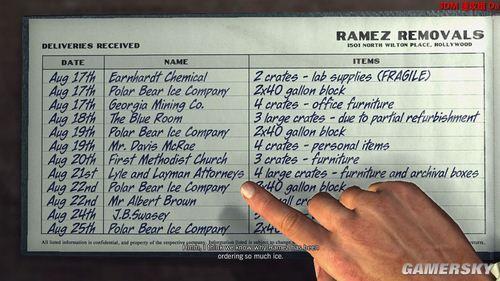 RAMEZ REMOVALS
1501 NORTH WILTON PLACE, HOLLYWOOD
DELIVERIES RECEIVED
DATE NAME ITEMS
Aug 17th Earnhardt Chemical 2 crates - lab supplies (FRAGILE)
Aug 17th Polar Bear Ice Company 2x40 gallon block
Aug 17th Georgia Mining Co. 4 crates - office furniture
Aug 18th The Blue Room 3 large crates - due to partial refurbishment
Aug 19th Polar Bear Ice Company 2x40 gallon block
Aug 19th Mr. Davis McRae 4 crates - personal items
Aug 20th First Methodist Church 3 crates - furniture
Aug 21st Lyle and Layman Attorneys 4 large crates - furniture and archival boxes
Aug 22nd Polar Bear Ice Company 2x40 gallon block
Aug 22nd Mr Albert Brown small crates
Aug 24th J.B.Swasey
Aug 25th Polar Bear Ice Company 2x40
All listed information is confidential, and property of the respective company. Information listed is subject to change
Hmm, I think we know why Ramez has been
ordering so much ice.
GAMERSKY